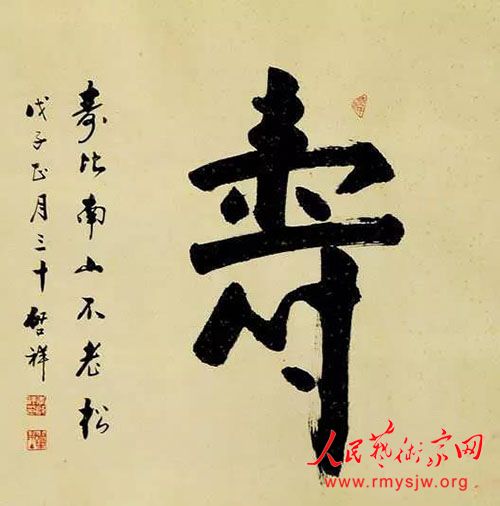 寿
寿比南山不老松
戊子正月三十啓祥
人民藝術家网
www.rmysjw.org